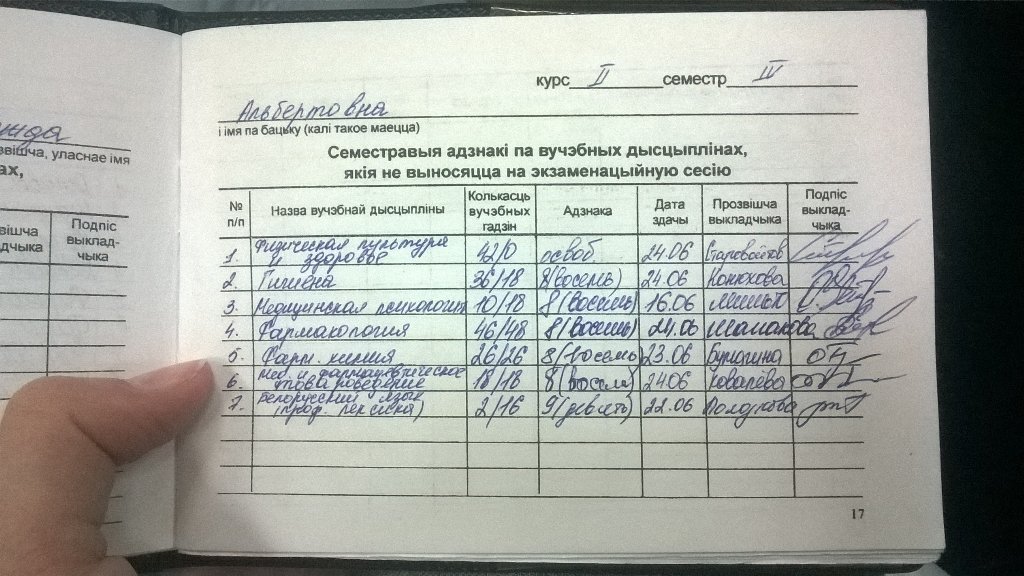 курс II семестр IV
Альбертовна
і імя па бацьку (калі такое маецца)
Семестравыя адзнакі па вучэбных дысцыплінах,
якія не выносяцца на экзаменацыйную сесію
№ п/п Назва вучэбнай дысцыпліны Колькасць вучэбных гадзін Адзнака Дата здачы Прозвішча выкладчыка Подпіс выклад-чыка
1. Физическая культура и здоровье 42/0 освоб. 24.06 Старовойтов
2. Гигиена 36/18 8(восемь) 24.06 Конюхова
3. Медицинская психология 10/18 8(восемь) 16.06
4. Фармакология 46/48 8(восемь) 24.06
5. Фарм. химия 26/26 8(восемь) 23.06
6. Мед. и фармацевтическое товароведение 18/18 8(восемь) 24.06 Ковалёва
7. Белорусский язык (проф. лексика) 2/16 9(девять) 22.06
17
звішча, уласнае імя
ах,
звішча
дчыка
Подпіс
выклад-
чыка